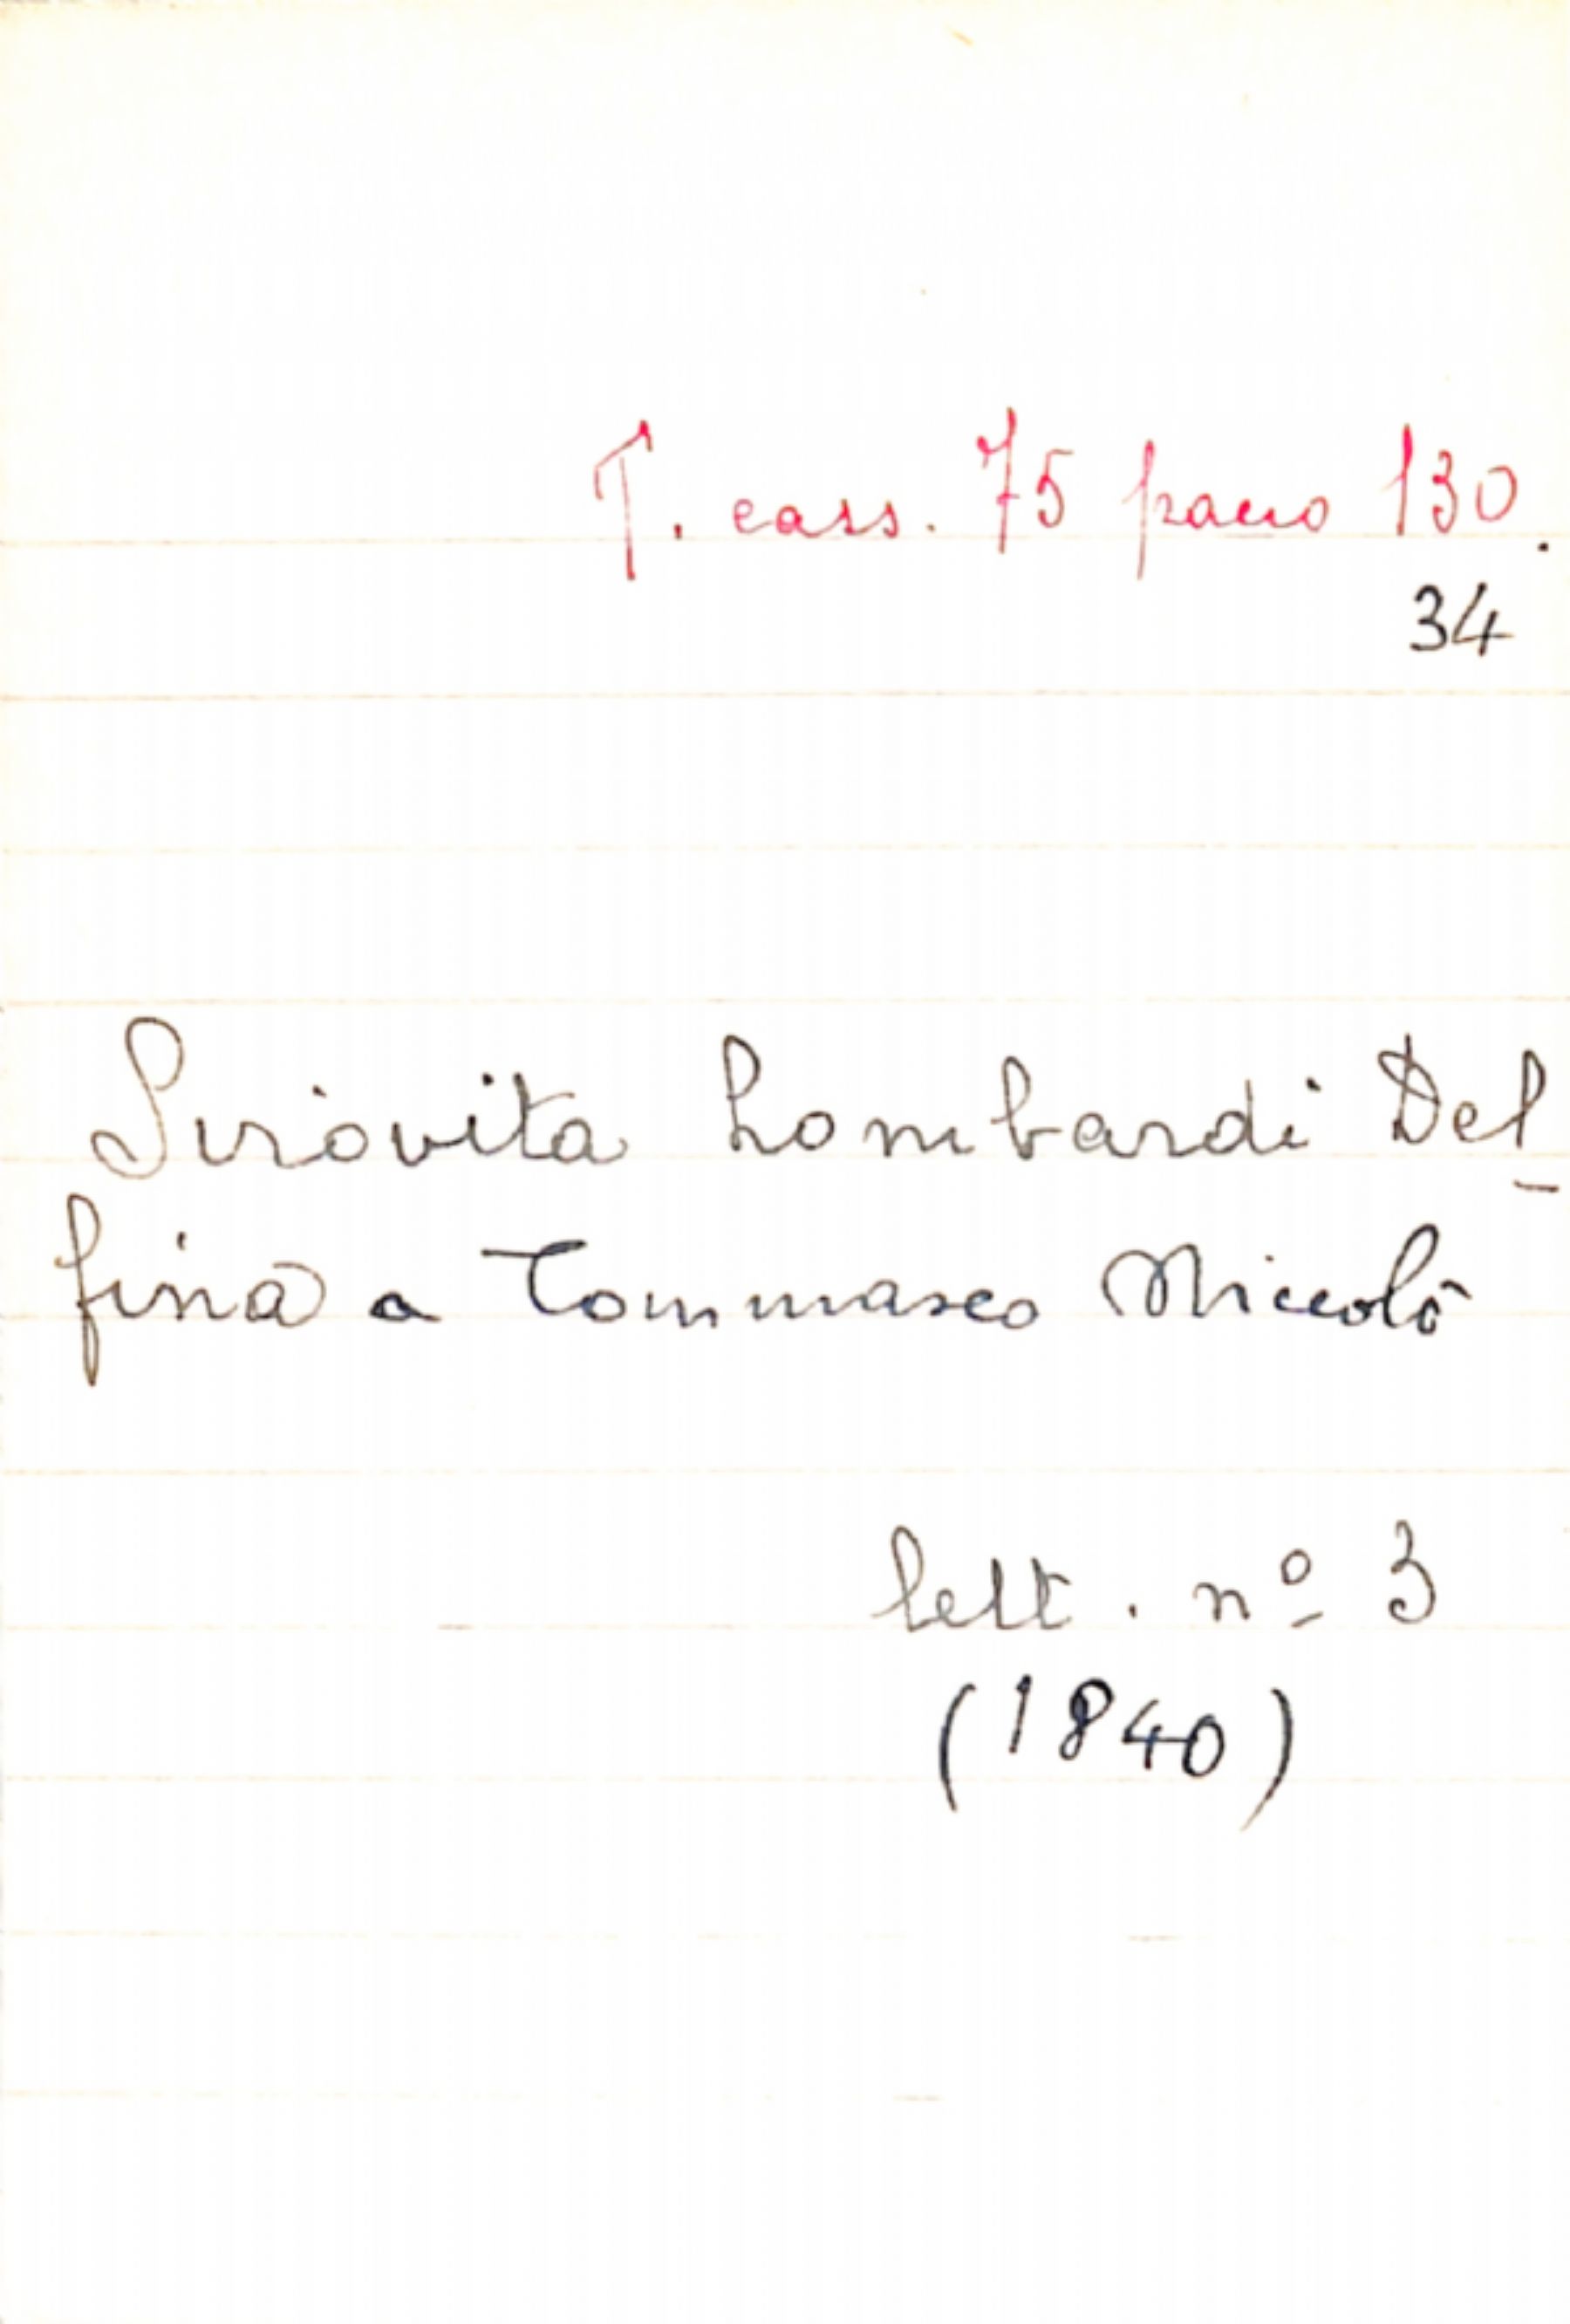 T. cass. 75 pacco 130.
34
Siriovita Lombardi Del-
fina a Tommaseo Niccolò
lett. nº 3
(1840)